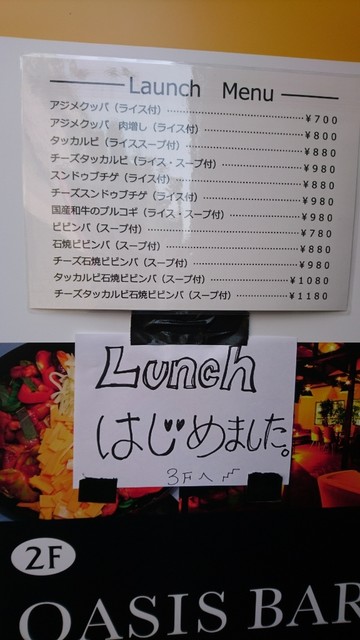 Launch Menu
アジメクッパ（ライス付）……………………¥700
アジメクッパ 肉増し（ライス付）……………………¥800
タッカルビ（ライススープ付）……………………¥880
チーズタッカルビ（ライス・スープ付）……………………¥980
スンドゥブチゲ（ライス付）……………………¥880
チーズスンドゥブチゲ（ライス付）……………………¥980
国産和牛のプルコギ（ライス・スープ付）……………………¥980
ビビンバ（スープ付）……………………¥780
石焼ビビンバ（スープ付）……………………¥880
チーズ石焼ビビンバ（スープ付）……………………¥980
タッカルビ石焼ビビンバ（スープ付）……………………¥1080
チーズタッカルビ石焼ビビンバ（スープ付）……………………¥1180
Lunch
はじめました。
3Fへ
2F
OASIS BAR